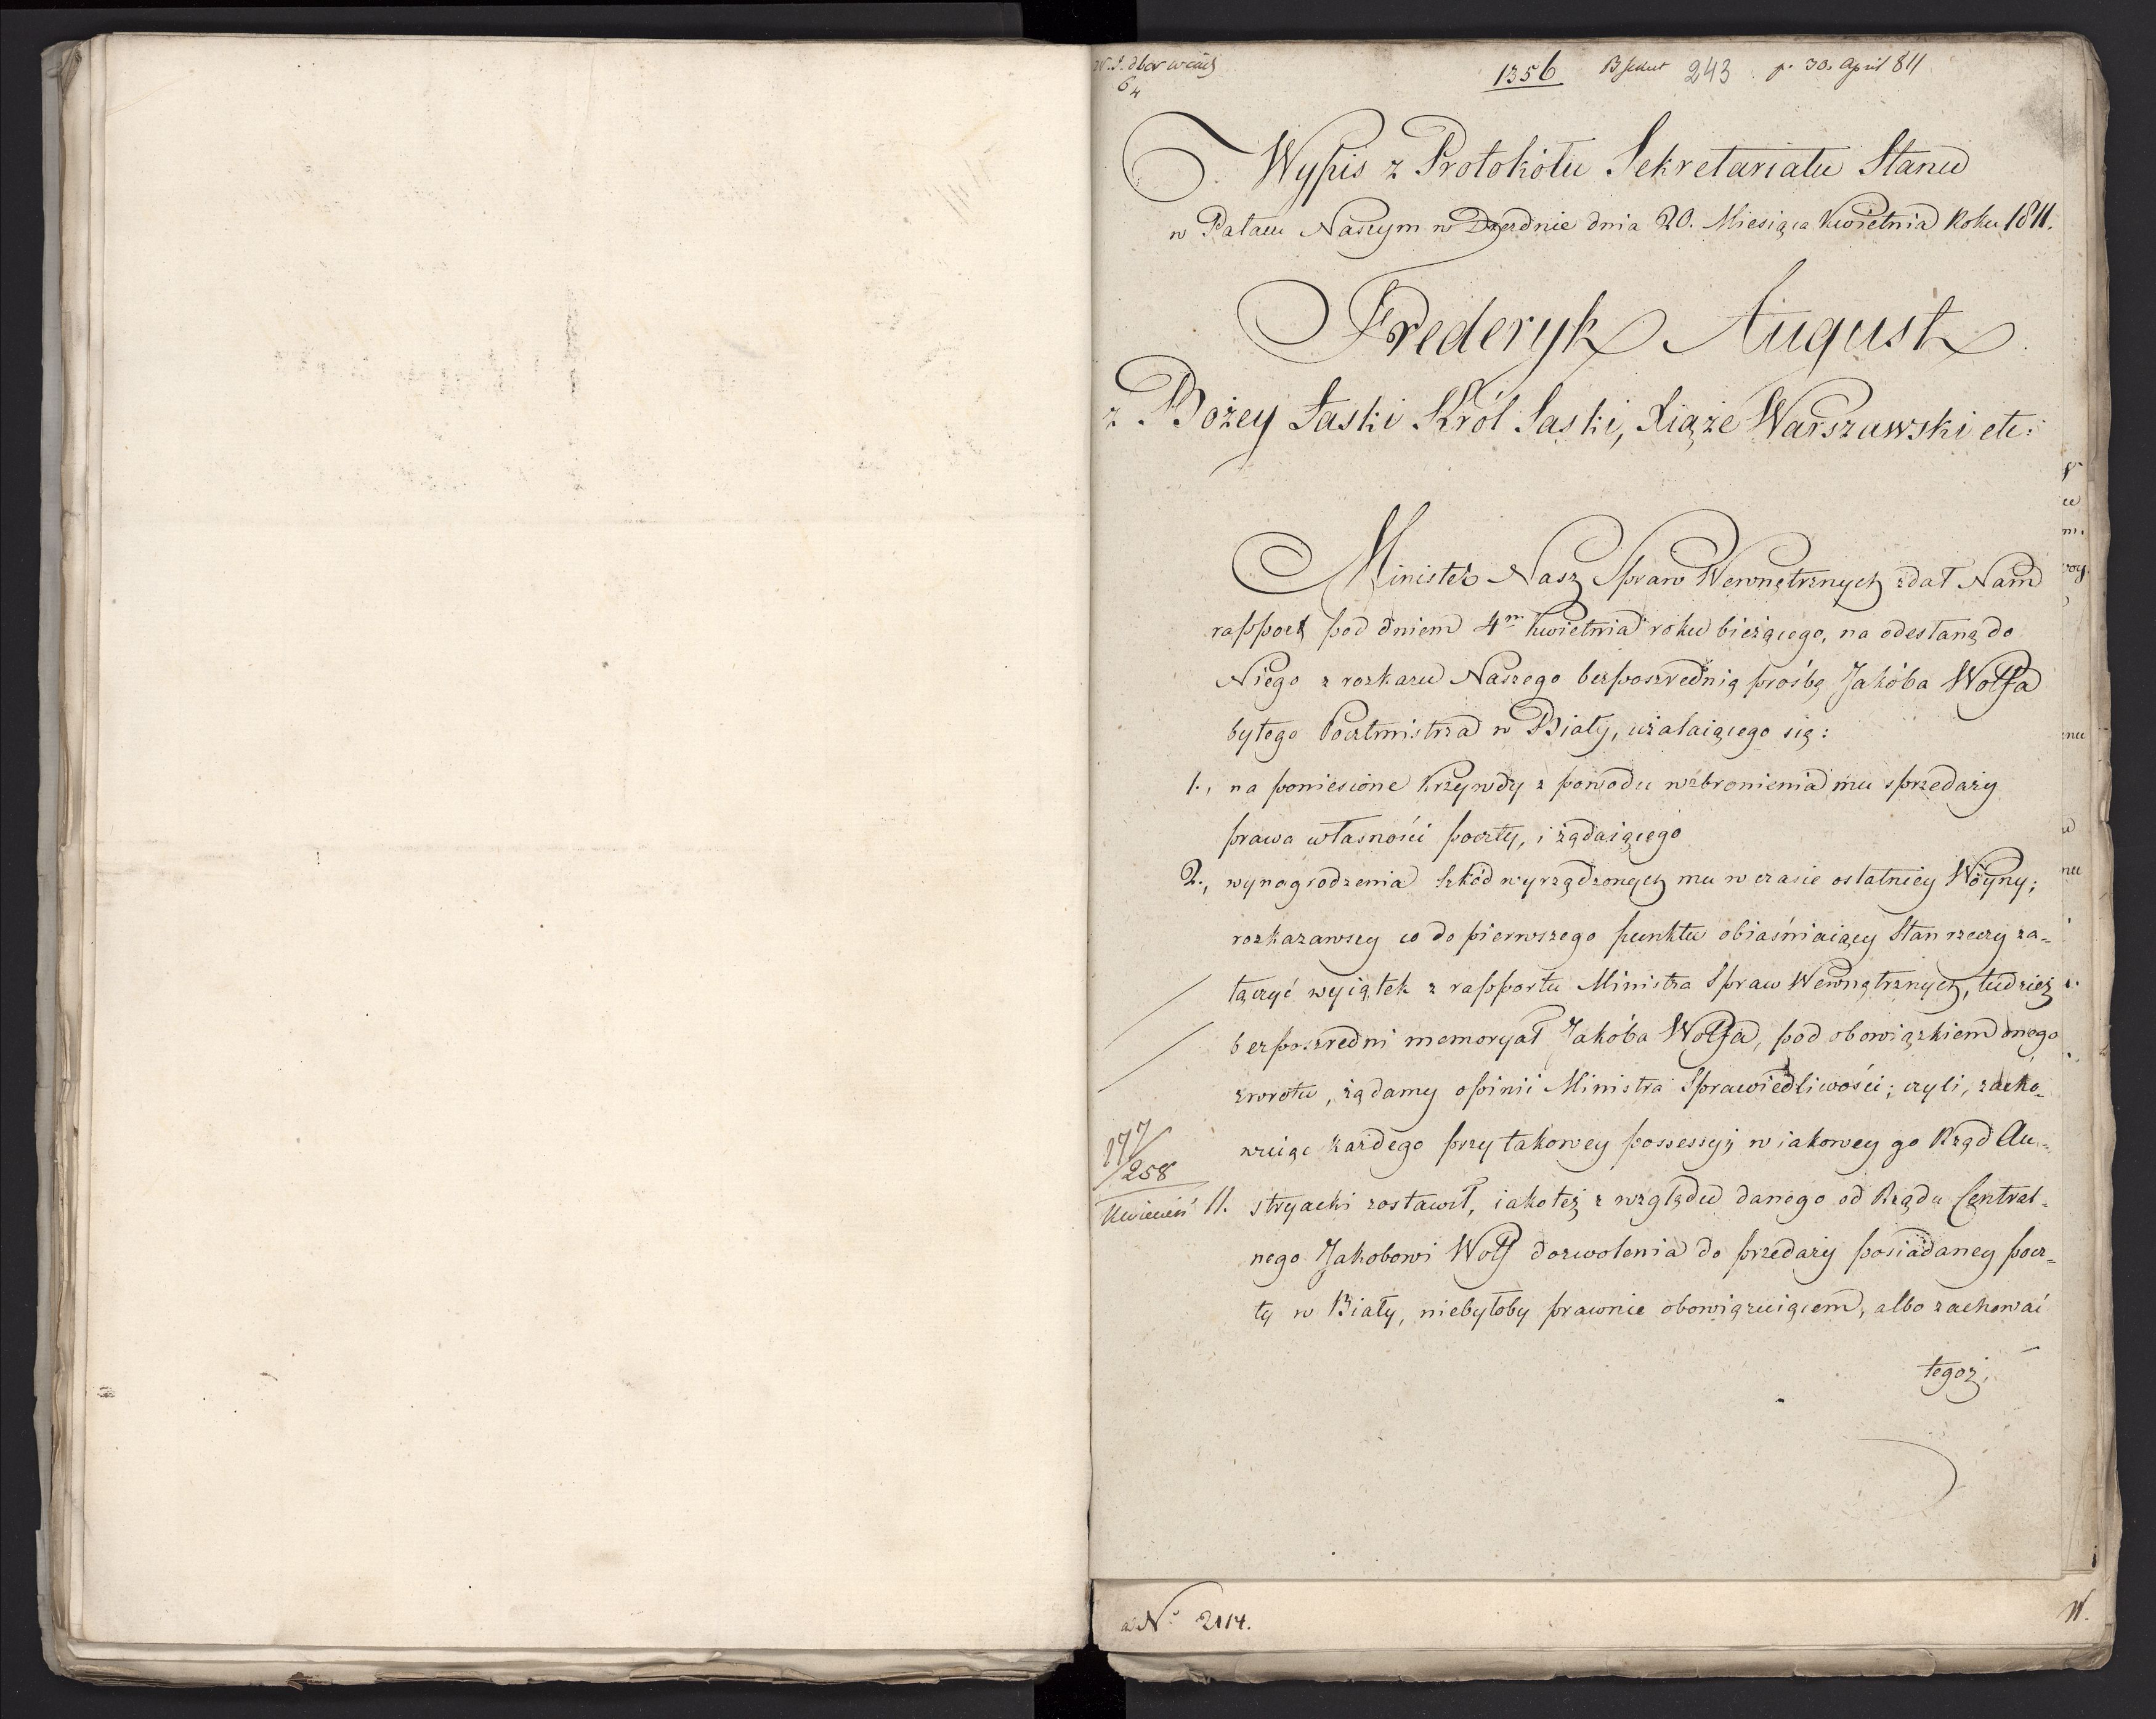 1356 243 p. 30. April 811
64
Wypis z Protokółu Sekretariatu Stanu
w Pałacu Naszym w Dreźnie dnia 20. Miesiąca Kwietnia Roku 1811.
Frederyk August
z Bożey Łaski Król Saski, Xiąże Warszawski etc:
Minister Nasz Spraw Wewnętrznych zdał Nam
rapport pod dniem 4m Kwietnia roku bieżącego, na odesłaną do
Niego z rozkazu Naszego bezpośrzednią prośbę Jakóba Wolfa
byłego Pocztmistrza w Biały, użalaiącego się:
1., na poniesione krzywdy z powodu wzbronienia mu sprzedaży
prawa własności poczty, i żądaiącego
2., wynagrodzenia szkód wyrządzonych mu w czasie ostatniey Woyny;
rozkazawszy co do pierwszego punktu obiaśniaiący Stan rzeczy za=
łączyć wyiątek z rapportu Ministra Spraw Wewnętrznych, tudzież
bezpośrzedni memoryał Jakóba Wolfa, pod obowiązkiem onego
zwrotu, żądamy opinii Ministra Sprawiedliwości; czyli, zacho=
wuiąc każdego przy takowey possessyi, w iakowey go Rząd Au=
177/258
Kwiecień 11.
stryacki zostawił, iakoteż z względu danego od Rządu Central=
nego Jakobowi Wolf dozwolenia do przedaży posiadaney pocz=
ty w Biały, niebyłoby prawnie obowiązuiącem, albo zachować
tegoż,
N° 2114.
W.